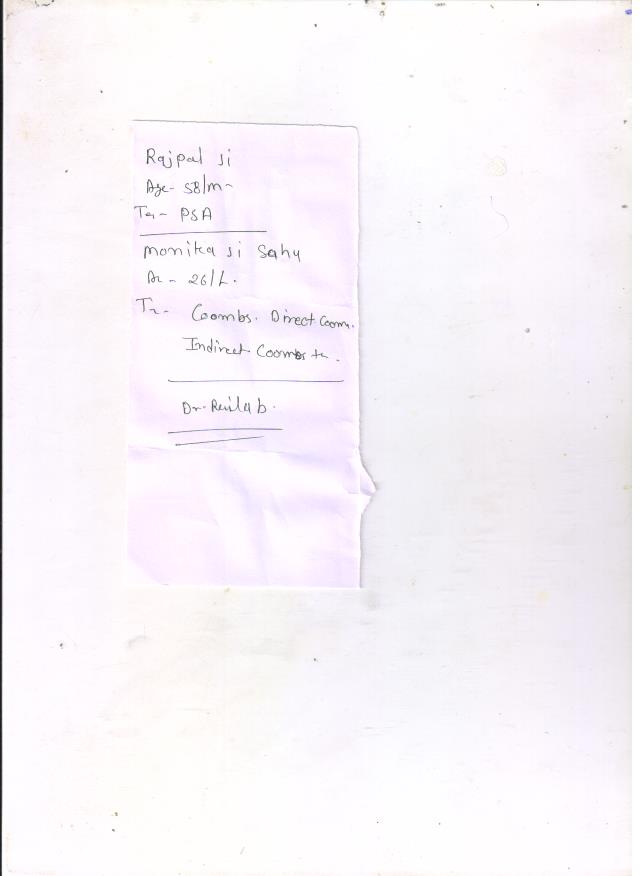 Rajpal si
Age - 58/m -
Te - PSA
Monika si Sahu
A - 26/L.
Te - Coombs. Direct Coom.
Indirect Coombs te.
Dr.